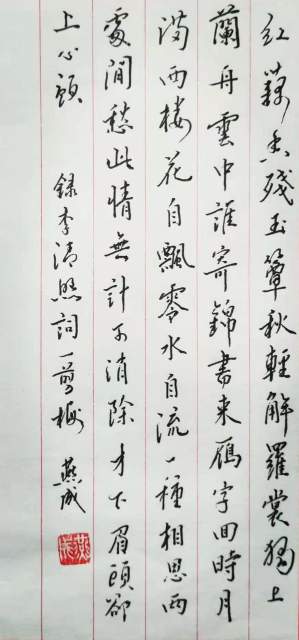 红藕香残玉簟秋輕解羅裳獨上
蘭舟雲中誰寄錦書来雁字回時月
满西樓花自飄零水自流一種相思两
處閒愁此情無計可消除才下眉頭卻
上心頭
録李清照詞一剪梅 燕成